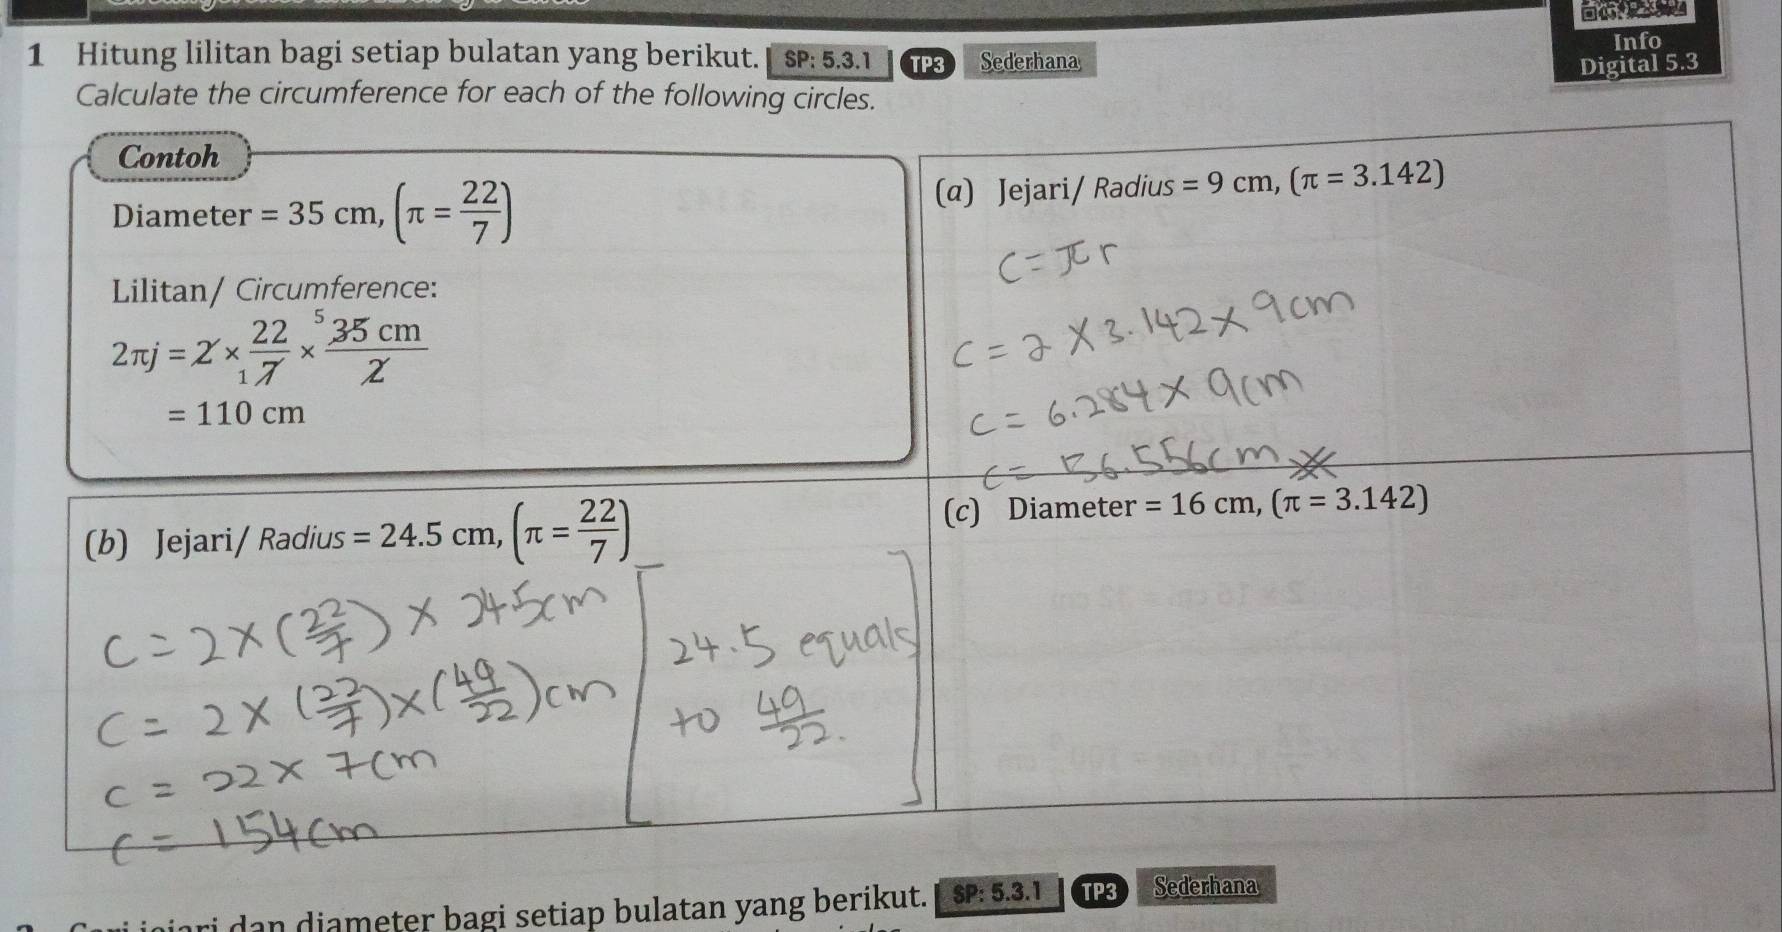 Info
Digital 5.3
1 Hitung lilitan bagi setiap bulatan yang berikut. SP: 5.3.1 TP3 Sederhana
Calculate the circumference for each of the following circles.
Contoh
Diameter = 35 cm, (π = 22/7)
Lilitan/ Circumference:
2πj = 2 × 22/7 × 35 cm/2
1 5
= 110 cm
(a) Jejari/ Radius = 9 cm, (π = 3.142)
C = πr
C = 2 × 3.142 × 9cm
C = 6.284 × 9cm
C = 56.556cm
(b) Jejari/ Radius = 24.5 cm, (π = 22/7)
C = 2 × (22/7) × 24.5cm
C = 2 × (22/7) × (49/22) cm
C = 22 × 7cm
C = 154cm
[24.5 equals
to 49/22.]
(c) Diameter = 16 cm, (π = 3.142)
dan diameter bagi setiap bulatan yang berikut. SP: 5.3.1 TP3 Sederhana